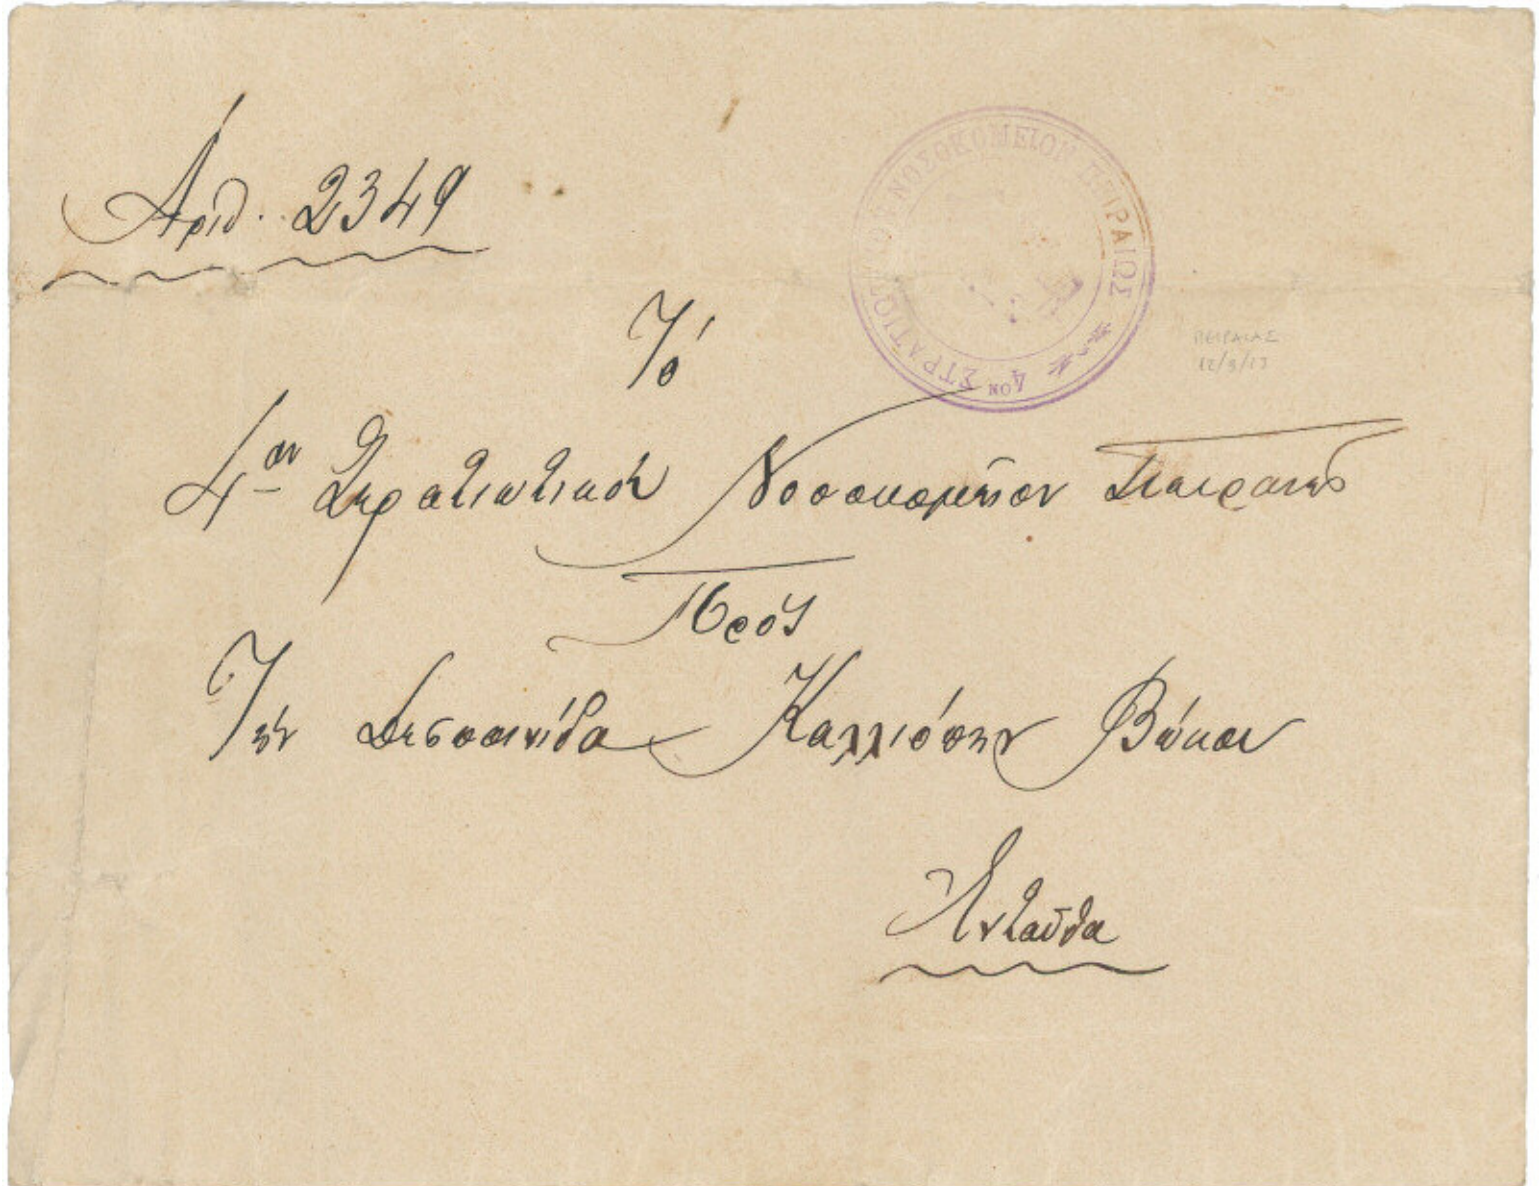 Ἀριθ. 2349
4ον ΣΤΡΑΤΙΩΤΙΚΟΝ ΝΟΣΟΚΟΜΕΙΟΝ ΠΕΙΡΑΙΩΣ
ΠΕΙΡΑΙΑΣ
12/9/13
Τό
4ον Στρατιωτικόν Νοσοκομεῖον Πειραιῶς
Πρός
Τήν Δεσποινίδα Καλλιόπην
Ἐνταῦθα